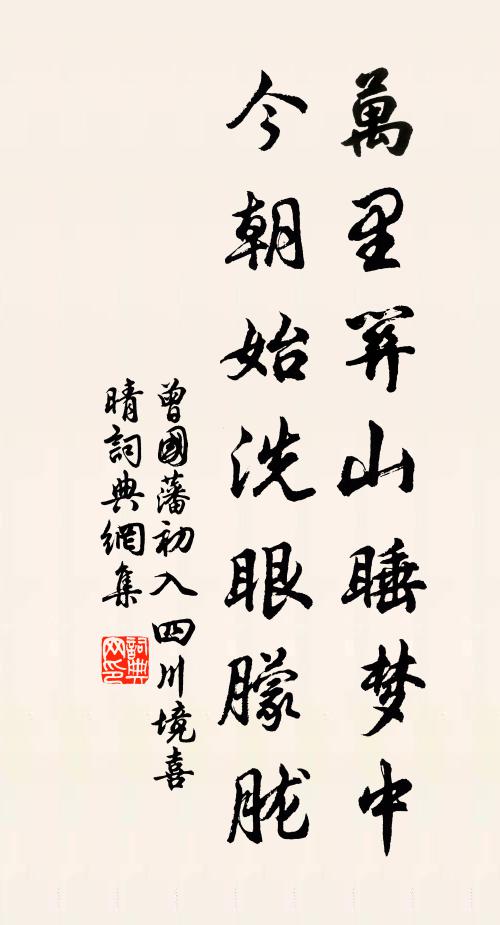 萬里關山睡梦中
今朝始洗眼朦朧
曾國藩初入四川境喜
晴詞典網集
詞典
网印